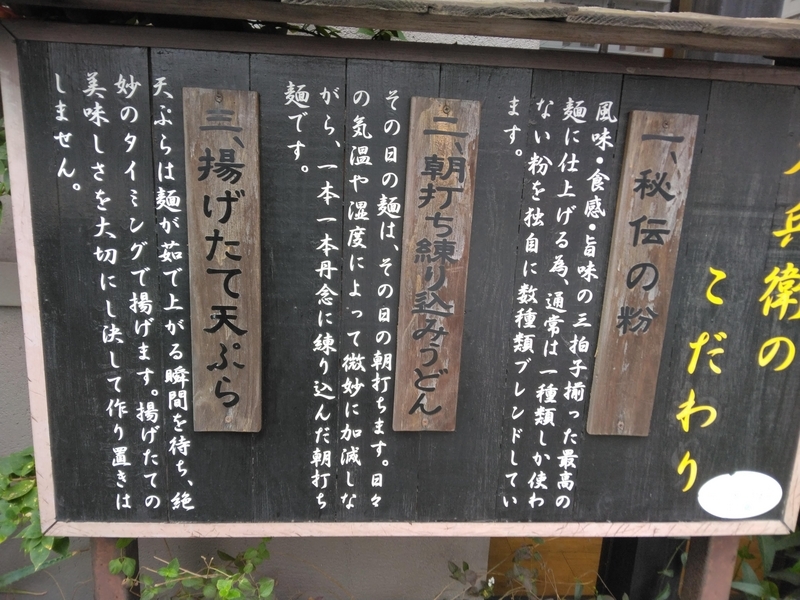 兵衛の
こだわり
一、秘伝の粉
風味・食感・旨味の三拍子揃った最高の
麺に仕上げる為、通常は一種類しか使わ
ない粉を独自に数種類ブレンドしてい
ます。
二、朝打ち練り込みうどん
その日の麺は、その日の朝打ちます。日々
の気温や湿度によって微妙に加減しな
がら、一本一本丹念に練り込んだ朝打ち
麺です。
三、揚げたて天ぷら
天ぷらは麺が茹で上がる瞬間を待ち、絶
妙のタイミングで揚げます。揚げたての
美味しさを大切にし決して作り置きは
しません。